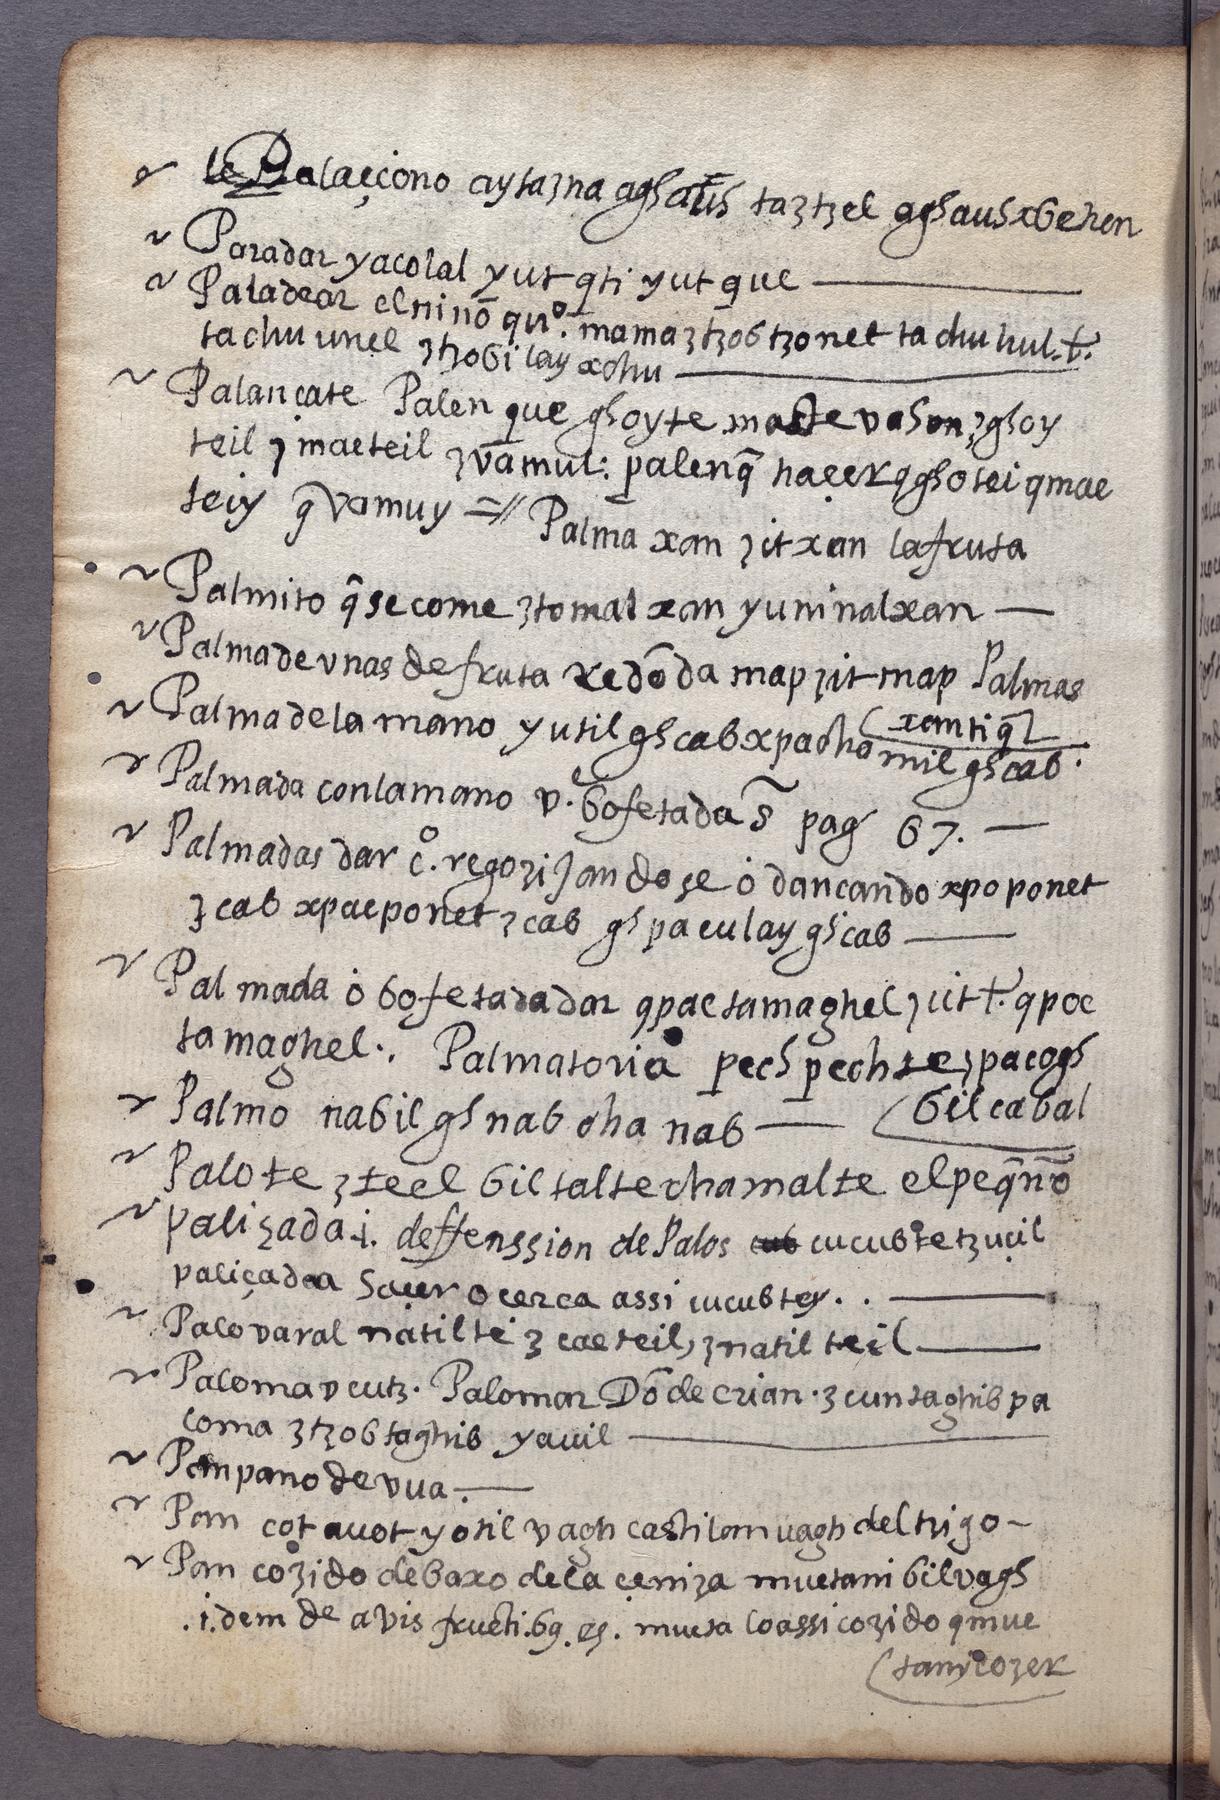 Palaçiono aytaʒna aghaush taʒtzel aghaushxbehen
Paradar yacolal yut qti yut que
Paladear el niño quo. mama ʒtʒob tʒonet ta chu hul. t.
ta chu unel ʒtʒobi lay xchu
Palancate Palenque ghoyte macte vahon ʒghoy
teil ʒmacteil ʒvamul: palenq̃ haçer qghotei qmac
teiy q̃ vamuy Palma xan ʒit xan la fruta
Palmito q̃ se come ʒtomal xan yuninal xan
Palma de unas de fruta redõda map ʒit map Palmas
(xantiql
Palma de la mano yutil ghcab xpacho mil ghcab.
Palmada con la mano v. bofetada S pag 67.
Palmadas dar co. regoʒiJandose o dancando xpoponet
ʒcab xpacponet ʒcab ghpaculay ghcab
Palmada o bofetada dar qpactamaghel ʒiit t. qpoc
tamaghel. Palmatoria pech pechte ʒpacogh
(bilcabal
Palmo nabil ghnab cha nab
Palo te ʒteel bil talte chamalte el peq̃ño
paliçada .i. deffenssion de Palos cucubte tzucil
paliçadaa haçer o cerca assi cucubtey. .
Palo varal natilte ʒ caeteil, ʒnatil teil
Paloma vcutz. Palomar Dõde crian. ʒcuntaghib pa
loma ʒtʒobtaghib yauil
Pampano de vua.
Pan cot auot yotil vagh castilan uagh del trigo
Pan coʒido debaxo de la çeniʒa muctani bil vagh
.i.dem de avis fructi.bg.es. mucta lo assi coʒido qmuc
(tanicoʒer